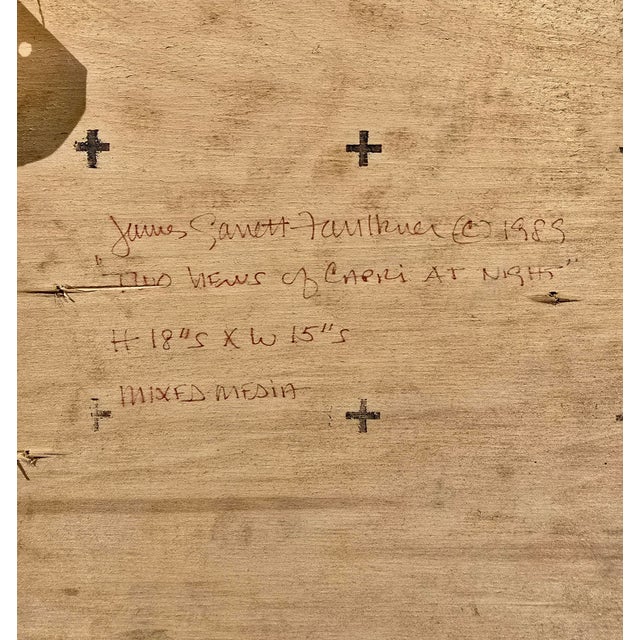 James Garrett-Faulkner (C) 1989
"Two Views of Capri At Night"
H 18"s X W 15"s
MIXED MEDIA